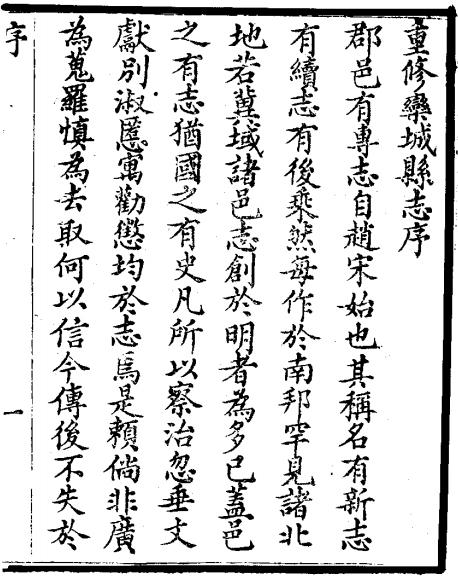 重修欒城縣志序
郡邑有專志自趙宋始也其稱名有新志
有續志有後乘然每作於南邦罕見諸北
地若冀域諸邑志創於明者為多已蓋邑
之有志猶國之有史凡所以察治忽垂文
獻別淑慝寓勸懲均於志焉是賴倘非廣
為蒐羅慎為去取何以信今傳後不失於
序
一